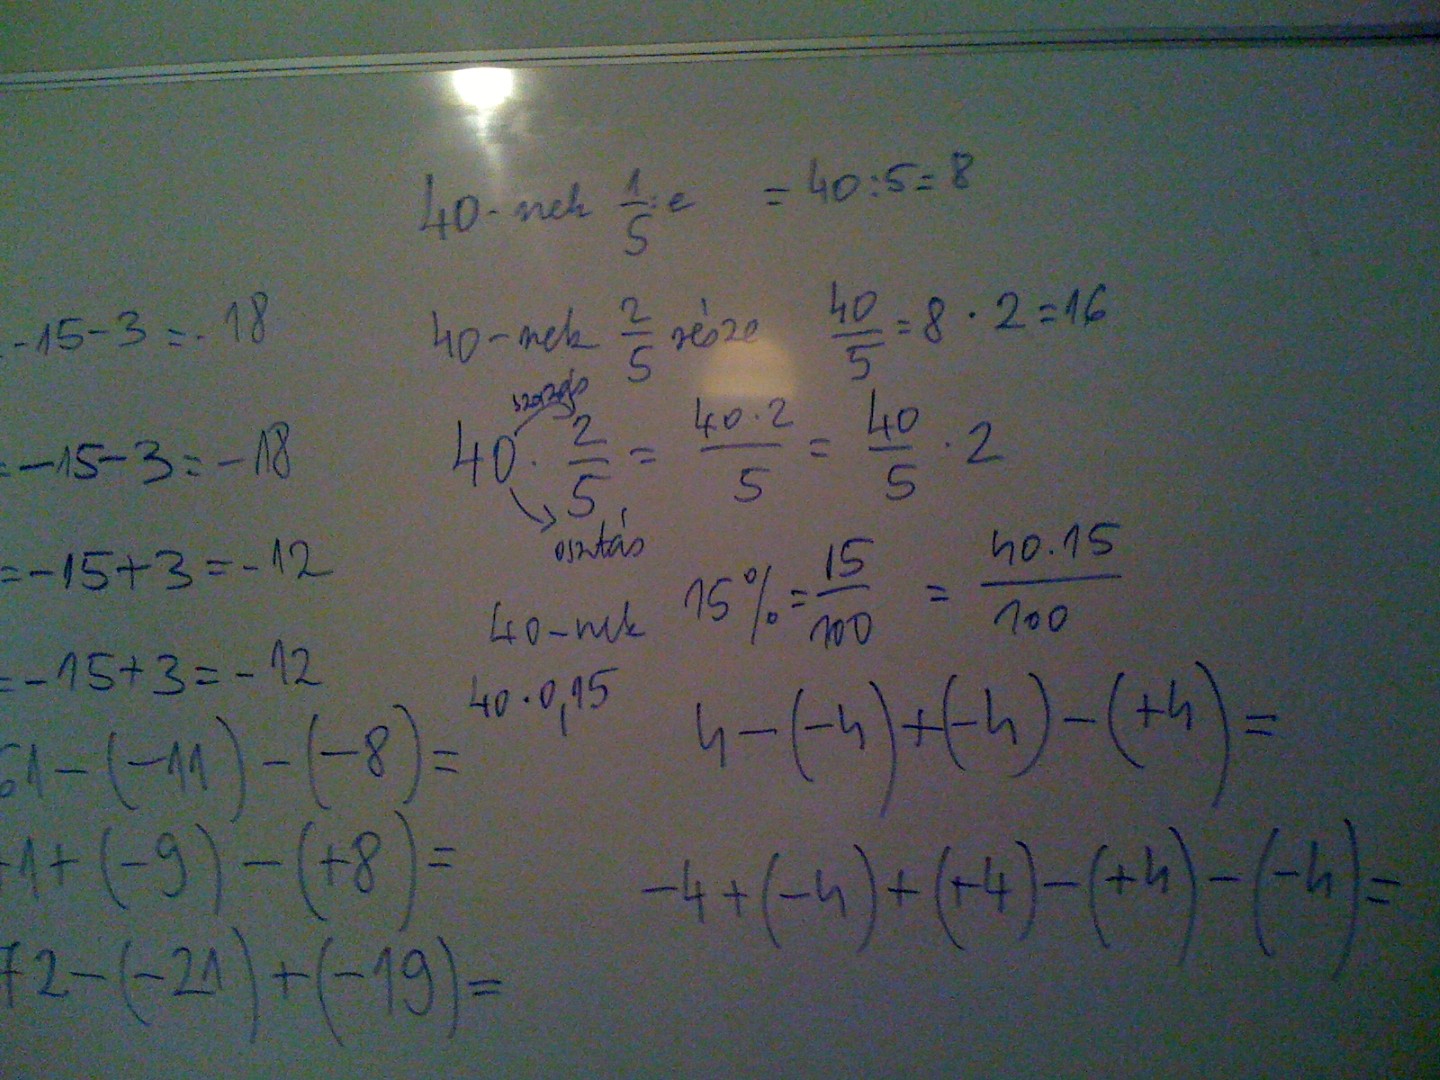 40-nek 1/5-e = 40:5=8
-15-3=-18
40-nek 2/5 része 40/5=8·2=16
szorzás
=-15-3=-18
40·2/5=40·2/5=40/5·2
osztás
=-15+3=-12
40-nek 15%=15/100=40.15/100
=-15+3=-12
40·0,15
61-(-11)-(-8)=
4-(-4)+(-4)-(+4)=
+1+(-9)-(+8)=
-4+(-4)+(+4)-(+4)-(-4)=
72-(-21)+(-19)=